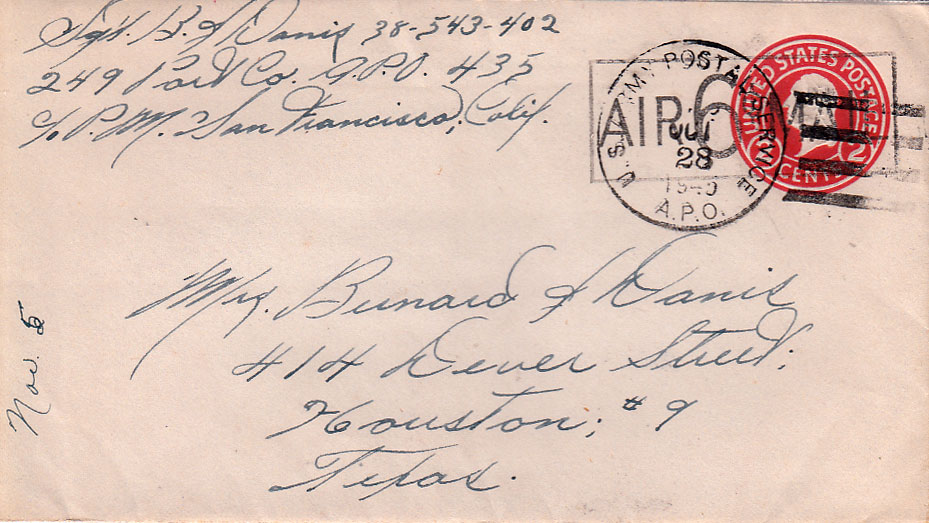 Sgt. B. S. Davis 38-543-402
249 Port Co. A.P.O. 435
c/o P.M. San Francisco, Calif.
UNITED STATES POSTAGE
2 CENTS
AIR 6
U.S. ARMY POSTAL SERVICE
28
A.P.O.
Mrs. Bernard S. Davis
414 Dever Street.
Houston, #9
Texas.
Nov. 5